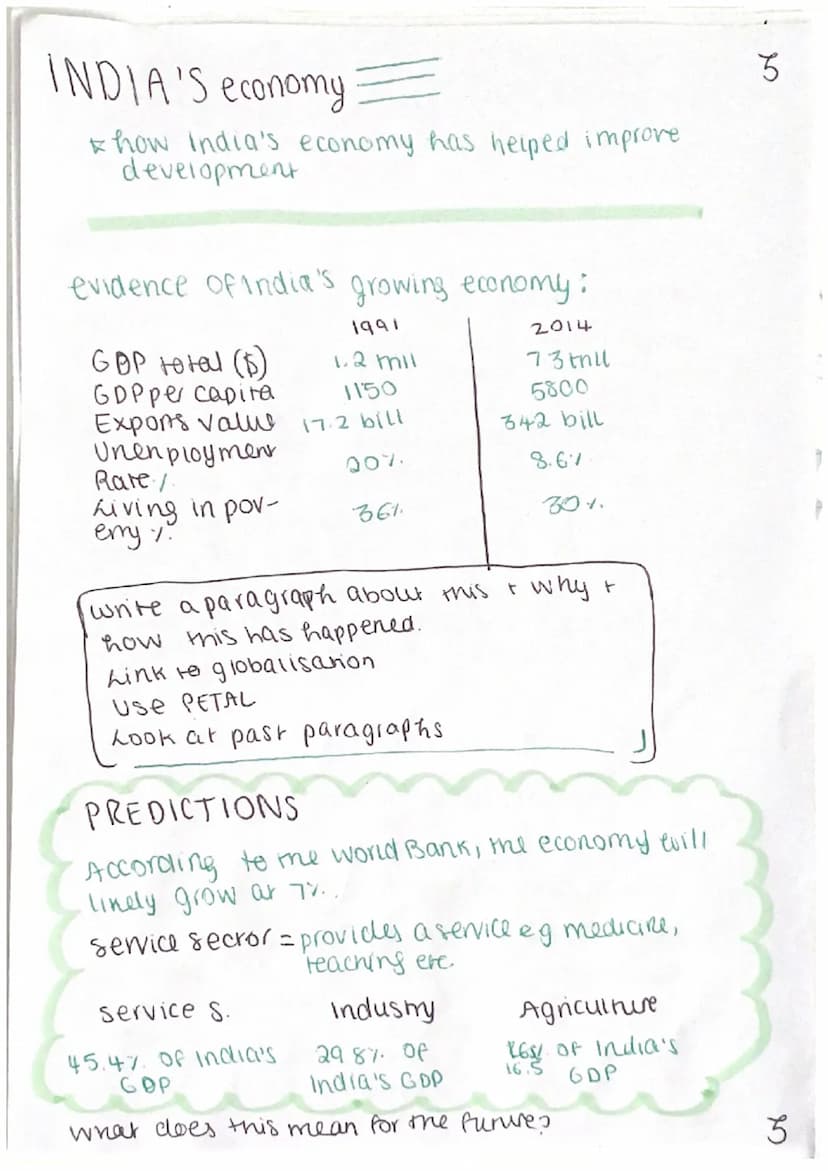 INDIA'S economy
3
* how India's economy has helped improve
development
evidence of India's growing economy:
1991 2014
GDP total ($) 1.2 mil
GDP per capita 1150 5800
Exports value 17.2 bill 342 bill
Unenployment
Rate % 20% 8.6%
Living in pov-
erty %. 36% 30%
Write a paragraph about this + why +
how this has happened.
Link to globalisation
Use PETAL
Look at past paragraphs
PREDICTIONS
According to the World Bank, the economy will
likely grow at 7%.
service sector = provides a service eg medicine,
teaching etc.
service s. Industry Agriculture
45.4% of India's 29 8% of of India's
16.5
GDP India's GDP GDP
What does this mean for the future?
3